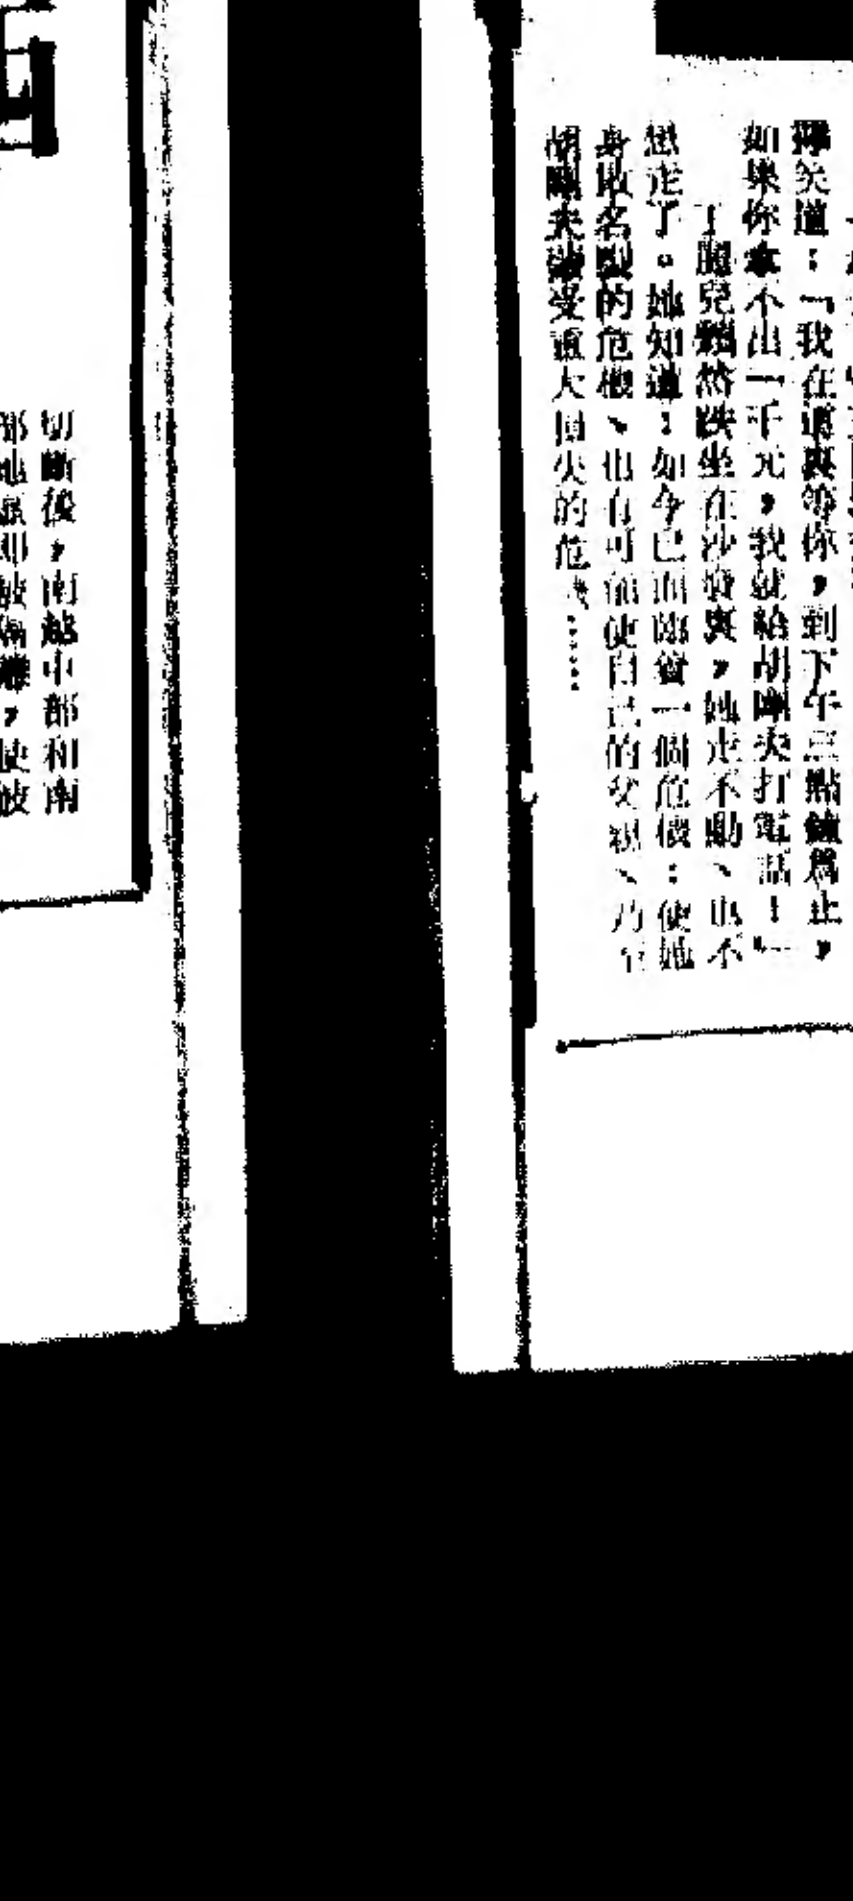 笑道：「我在這裏等你，到下午三點鐘爲止，
如果你拿不出一千元，我就給胡剛夫打電話！」
丁麗兒頹然跌坐在沙發裏，她走不動、也不
想走了。她知道：如今已面臨着一個危機：使她
身敗名裂的危機、也有可能使自己的父親、乃至
胡剛夫蒙受重大損失的危機……
切斷後，南越中部和南
部地區即被隔離，使被